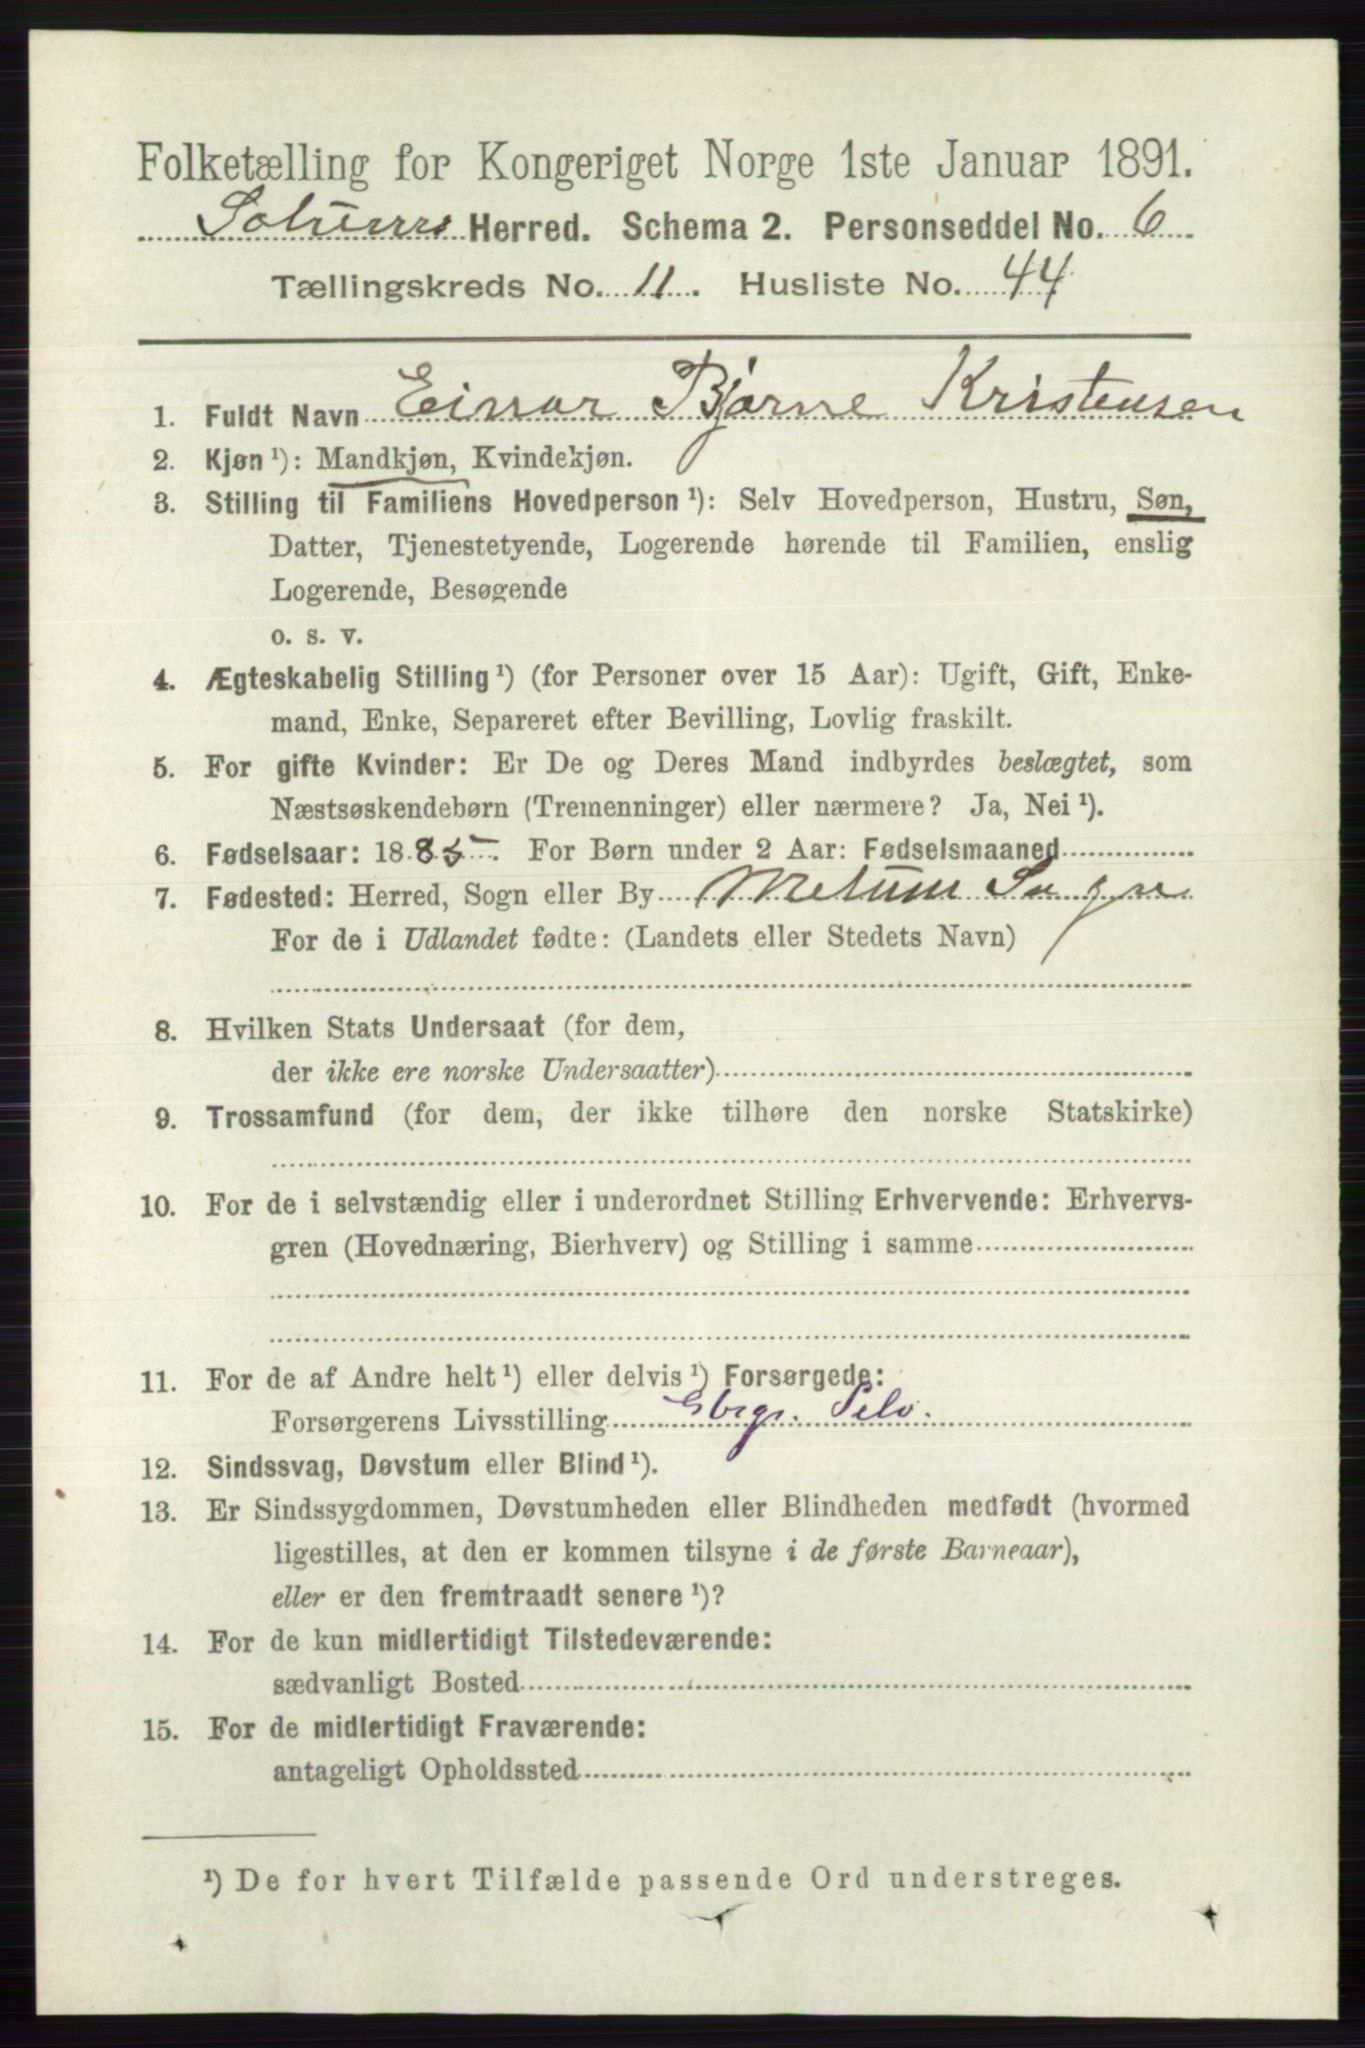 Folketælling for Kongeriget Norge 1ste Januar 1891.
Solums Herred. Schema 2. Personseddel No. 6
Tællingskreds No. 11. Husliste No. 44
1. Fuldt Navn Einar Bjarne Kristensen
2. Kjøn ¹): Mandkjøn, Kvindekjøn.
3. Stilling til Familiens Hovedperson ¹): Selv Hovedperson, Hustru, Søn,
Datter, Tjenestetyende, Logerende hørende til Familien, enslig
Logerende, Besøgende
o. s. v.
4. Ægteskabelig Stilling ¹) (for Personer over 15 Aar): Ugift, Gift, Enke-
mand, Enke, Separeret efter Bevilling, Lovlig fraskilt.
5. For gifte Kvinder: Er De og Deres Mand indbyrdes beslægtet, som
Næstsøskendebørn (Tremenninger) eller nærmere? Ja, Nei ¹).
6. Fødselsaar: 1885. For Børn under 2 Aar: Fødselsmaaned
7. Fødested: Herred, Sogn eller By Melum Sogn
For de i Udlandet fødte: (Landets eller Stedets Navn)
8. Hvilken Stats Undersaat (for dem,
der ikke ere norske Undersaatter)
9. Trossamfund (for dem, der ikke tilhøre den norske Statskirke)
10. For de i selvstændig eller i underordnet Stilling Erhvervende: Erhvervs-
gren (Hovednæring, Bierhverv) og Stilling i samme
11. For de af Andre helt ¹) eller delvis ¹) Forsørgede:
Forsørgerens Livsstilling Gbrgr. Selv.
12. Sindssvag, Døvstum eller Blind ¹).
13. Er Sindssygdommen, Døvstumheden eller Blindheden medfødt (hvormed
ligestilles, at den er kommen tilsyne i de første Barneaar),
eller er den fremtraadt senere ¹)?
14. For de kun midlertidigt Tilstedeværende:
sædvanligt Bosted
15. For de midlertidigt Fraværende:
antageligt Opholdssted
¹) De for hvert Tilfælde passende Ord understreges.